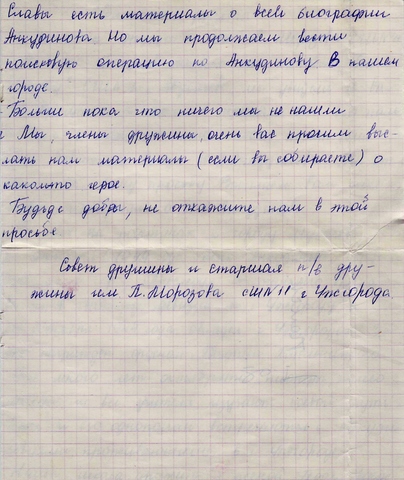 Славы есть материалы о всей биографии
Анкудинова Но мы продолжаем вести
поисковую операцию по Анкудинову В нашем
городе.
Больши пока что ничего мы не нашли
Мы, члены дружины, очень вас просим выс-
лать нам материалы (если вы собираете) о
какомто герое.
Будьде добры, не откажите нам в этой
просьбе
Совет дружины и старшая п/в дру-
жины им П. Морозова сш№11 г Ужгорода.